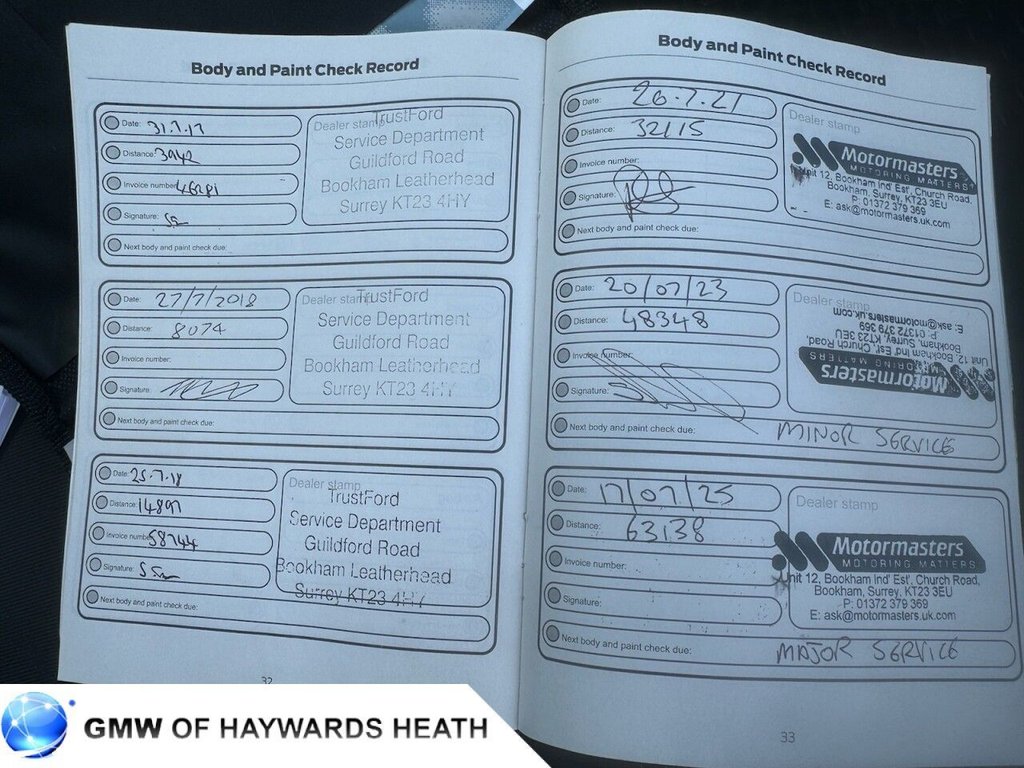 Body and Paint Check Record
Date: 31.7.17
Distance: 3942
Invoice number:
Signature:
Next body and paint check due:
Dealer stamp
TrustFord
Service Department
Guildford Road
Bookham Leatherhead
Surrey KT23 4HY
Date: 27/7/2018
Distance: 8074
Invoice number:
Signature:
Next body and paint check due:
Dealer stamp
TrustFord
Service Department
Guildford Road
Bookham Leatherhead
Surrey KT23 4HY
Date: 25.7.18
Distance: 14897
Invoice number: 58744
Signature:
Next body and paint check due:
Dealer stamp
TrustFord
Service Department
Guildford Road
Bookham Leatherhead
Surrey KT23 4HY
32
Body and Paint Check Record
Date: 26.7.21
Distance: 32115
Invoice number:
Signature:
Next body and paint check due:
Dealer stamp
Motormasters
MOTORING MATTERS
Unit 12, Bookham Ind' Est', Church Road,
Bookham, Surrey, KT23 3EU
P: 01372 379 369
E: ask@motormasters.uk.com
Date: 20/07/23
Distance: 48348
Invoice number:
Signature:
Next body and paint check due: MINOR SERVICE
Dealer stamp
Motormasters
MOTORING MATTERS
Unit 12, Bookham Ind' Est', Church Road,
Bookham, Surrey, KT23 3EU
P: 01372 379 369
E: ask@motormasters.uk.com
Date: 17/07/25
Distance: 63138
Invoice number:
Signature:
Next body and paint check due: MAJOR SERVICE
Dealer stamp
Motormasters
MOTORING MATTERS
Unit 12, Bookham Ind' Est', Church Road,
Bookham, Surrey, KT23 3EU
P: 01372 379 369
E: ask@motormasters.uk.com
33
GMW OF HAYWARDS HEATH